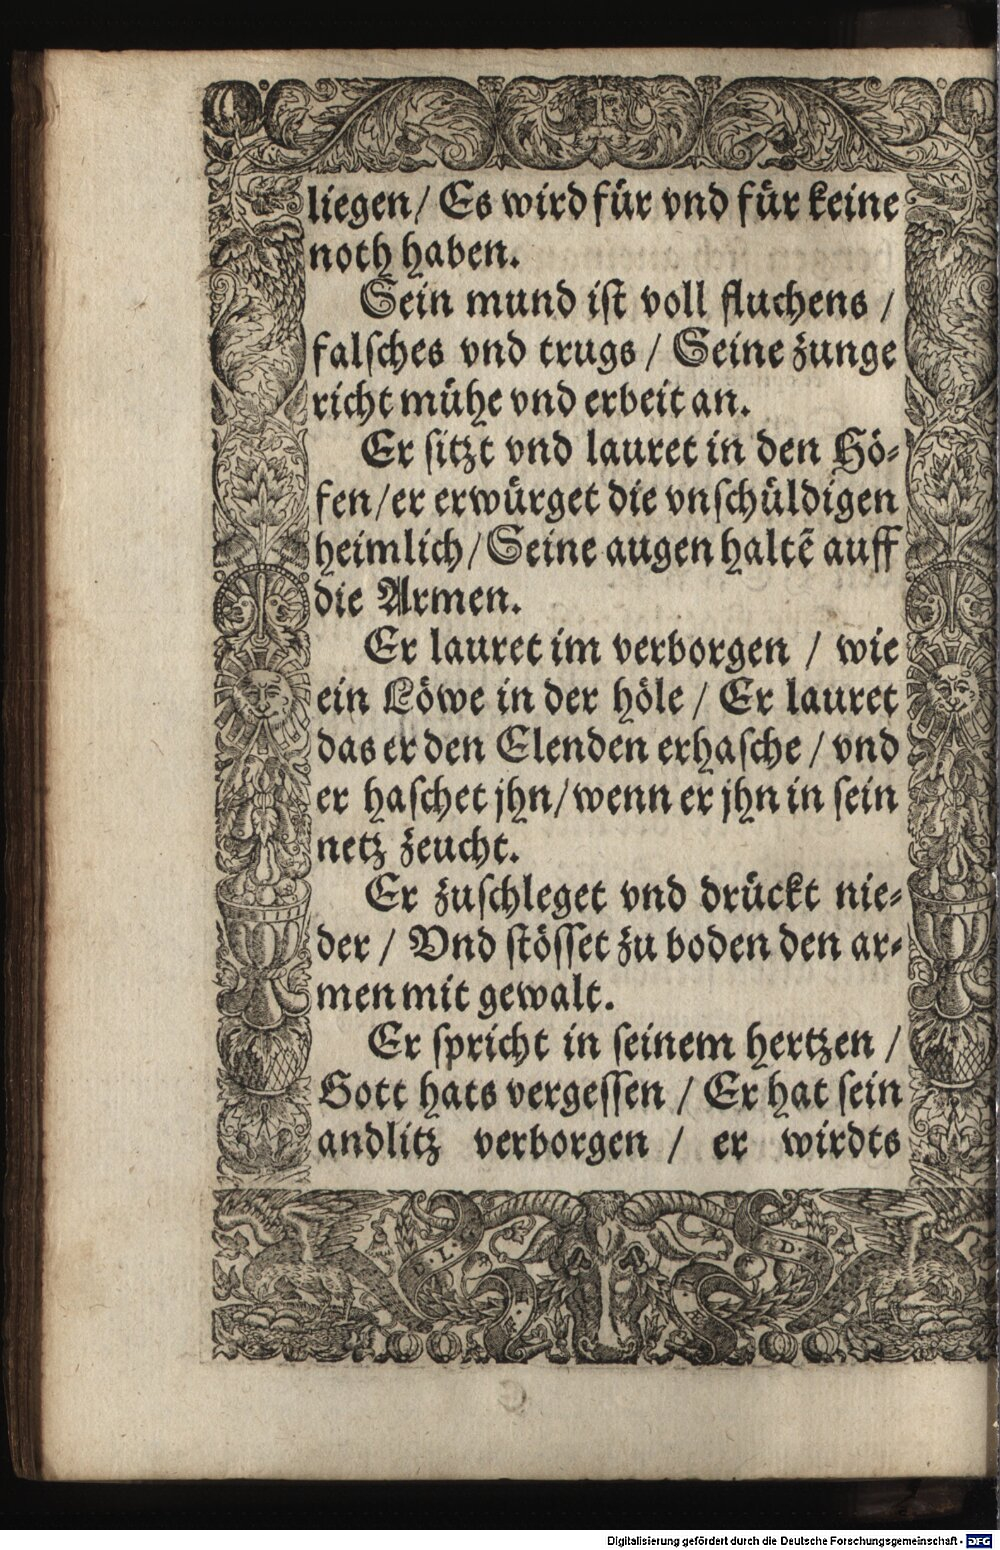 liegen/ Es wird für vnd für keine
noth haben.
Sein mund ist voll fluchens /
falsches vnd trugs / Seine zunge
richt mühe vnd erbeit an.
Er sitzt vnd lauret in den Hö-
fen/er erwürget die vnschüldigen
heimlich/Seine augen haltẽ auff
die Armen.
Er lauret im verborgen / wie
ein Löwe in der höle / Er lauret
das er den Elenden erhasche / vnd
er haschet jhn/wenn er jhn in sein
netz zeucht.
Er zuschleget vnd drückt nie-
der / Vnd stösset zu boden den ar-
men mit gewalt.
Er spricht in seinem hertzen /
Gott hats vergessen / Er hat sein
andlitz verborgen / er wirdts
Digitalisierung gefördert durch die Deutsche Forschungsgemeinschaft - DFG